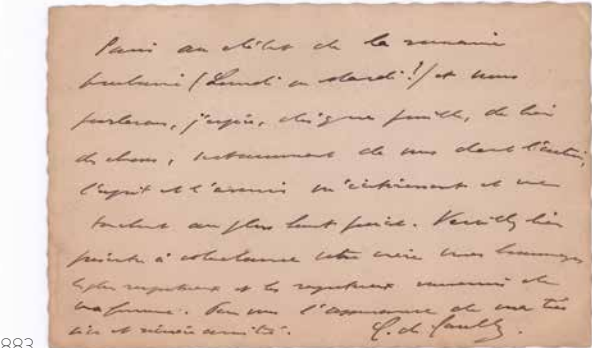 Paris au début de la semaine
prochaine (Lundi ou Mardi !) et nous
parlerons, j'espère, de bien
des choses, notamment de vous dont l'action,
l'esprit et l'avenir m'intéressent et me
touchent au plus haut point. Veuillez bien
à votre mère mes hommages
les plus respectueux et les respectueux souvenirs de
ma femme. Pour vous l'assurance de ma très
vive et sincère amitié. C. de Gaulle.
883